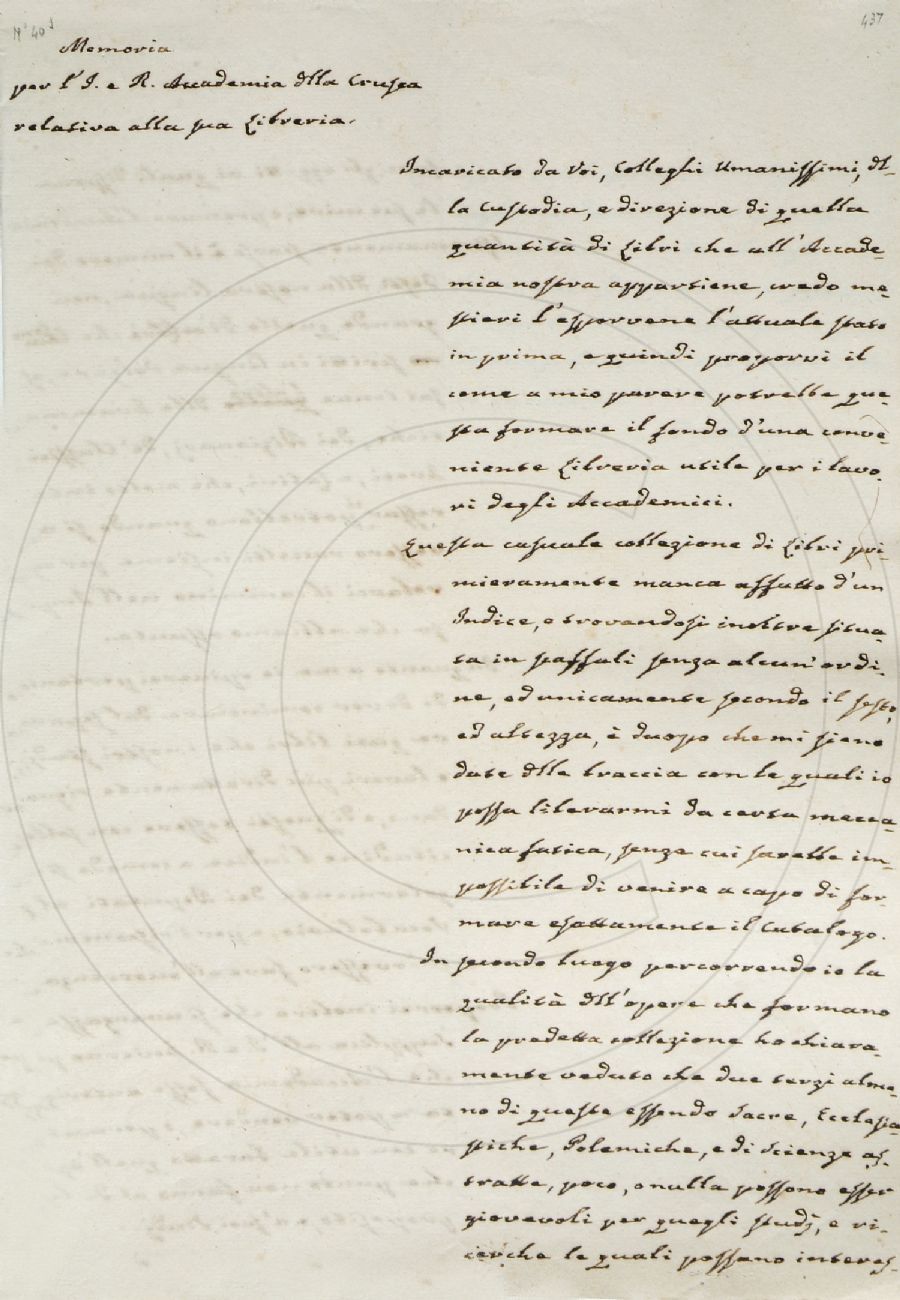 N° 40
437
Memoria
per l'I. e R. Accademia dlla Crusca
relativa alla sua Libreria.
Incaricato da Voi, Colleghi Umanissimi, dl-
la Custodia, e direzione di quella
quantità di Libri che all'Accade-
mia nostra appartiene, credo me-
stieri l'esporvene l'attuale stato
in prima, e quindi proporvi il
come a mio parere potrebbe que-
sta formare il fondo d'una conve-
niente Libreria utile per i lavo-
ri degli Accademici.
Questa casuale collezione di Libri pri-
mieramente manca affatto d'un
Indice, e trovandosi inoltre situa-
ta in scaffali senza alcun'ordi-
ne, ed unicamente secondo il sesto,
ed altezza, è duopo che mi sieno
date dlle braccia con le quali io
possa liberarmi da certa mecca-
nica fatica, senza cui sarebbe im-
possibile di venire a capo di for-
mare esattamente il Catalogo.
In secondo luogo percorrendo io la
qualità dll'opere che formano
la predetta collezione ho chiara-
mente veduto che due terzi alme-
no di queste essendo Sacre, Ecclesia-
stiche, Polemiche, e di Scienze as-
tratte, poco, o nulla possono esser
giovevoli per quegli studj, e ri-
cerche le quali possano interes-